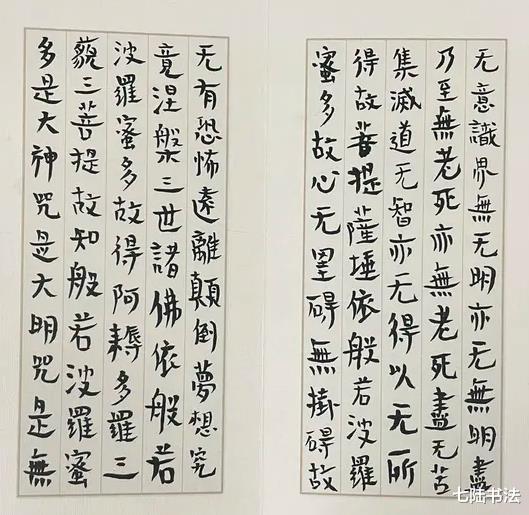 无意識界無无明亦无無明盡
乃至無老死亦無老死盡无苦
集滅道无智亦无得以无所
得故菩提薩埵依般若波羅
蜜多故心无罣碍無掛碍故
无有恐怖遠離顛倒夢想究
竟涅槃三世諸佛依般若
波羅蜜多故得阿耨多羅三
藐三菩提故知般若波羅蜜
多是大神咒是大明咒是無
七陆书法